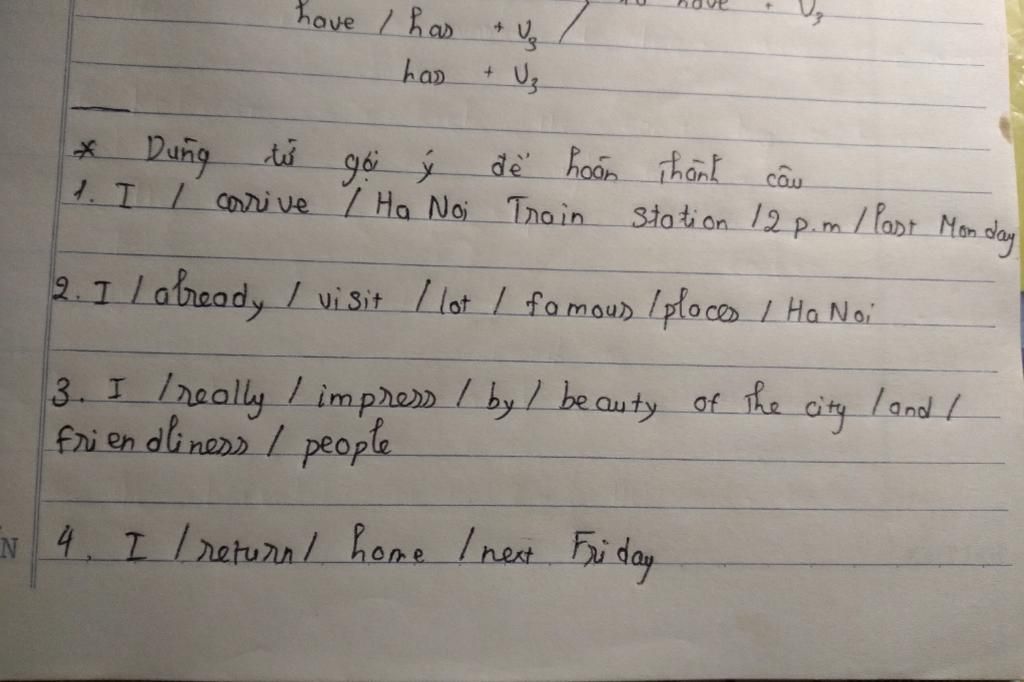 have + V3
have / has + V3 /
has + V3
* Dùng từ gợi ý để hoàn thành câu
1. I / arrive / Ha Noi Train station / 2 p.m / last Monday
2. I / already / visit / lot / famous / places / Ha Noi
3. I / really / impress / by / beauty of the city / and /
friendliness / people
4. I / return / home / next Friday
N